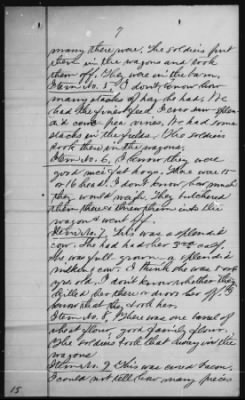 7
many there were. The soldiers put
them in the wagons and took
them off. They were in the barn.
Item No. 5. I don't know how
many stacks of hay he had. He
had the finest feed I ever saw
and cow pea vines. He had some
stacks in the fields. The soldiers
took them in the wagons.
Item No. 6. I know they were
good nice fat hogs. There were 15
or 16 head. I don't know how much
they would weigh. They butchered
them there & threw them into the
wagon & went off.
Item No. 7. This was a splendid
cow. She had had her 3rd calf.
She was full grown a splendid
milking cow. I think she was 5 or 6
yrs old. I don't know whether they
killed her there or drove her off. I
know that they took her.
Item No. 8. There was one barrel of
wheat flour, good family flour.
The soldiers took that away in the
wagons
Item No. 9. This was cured bacon.
I could not tell how many pieces
15